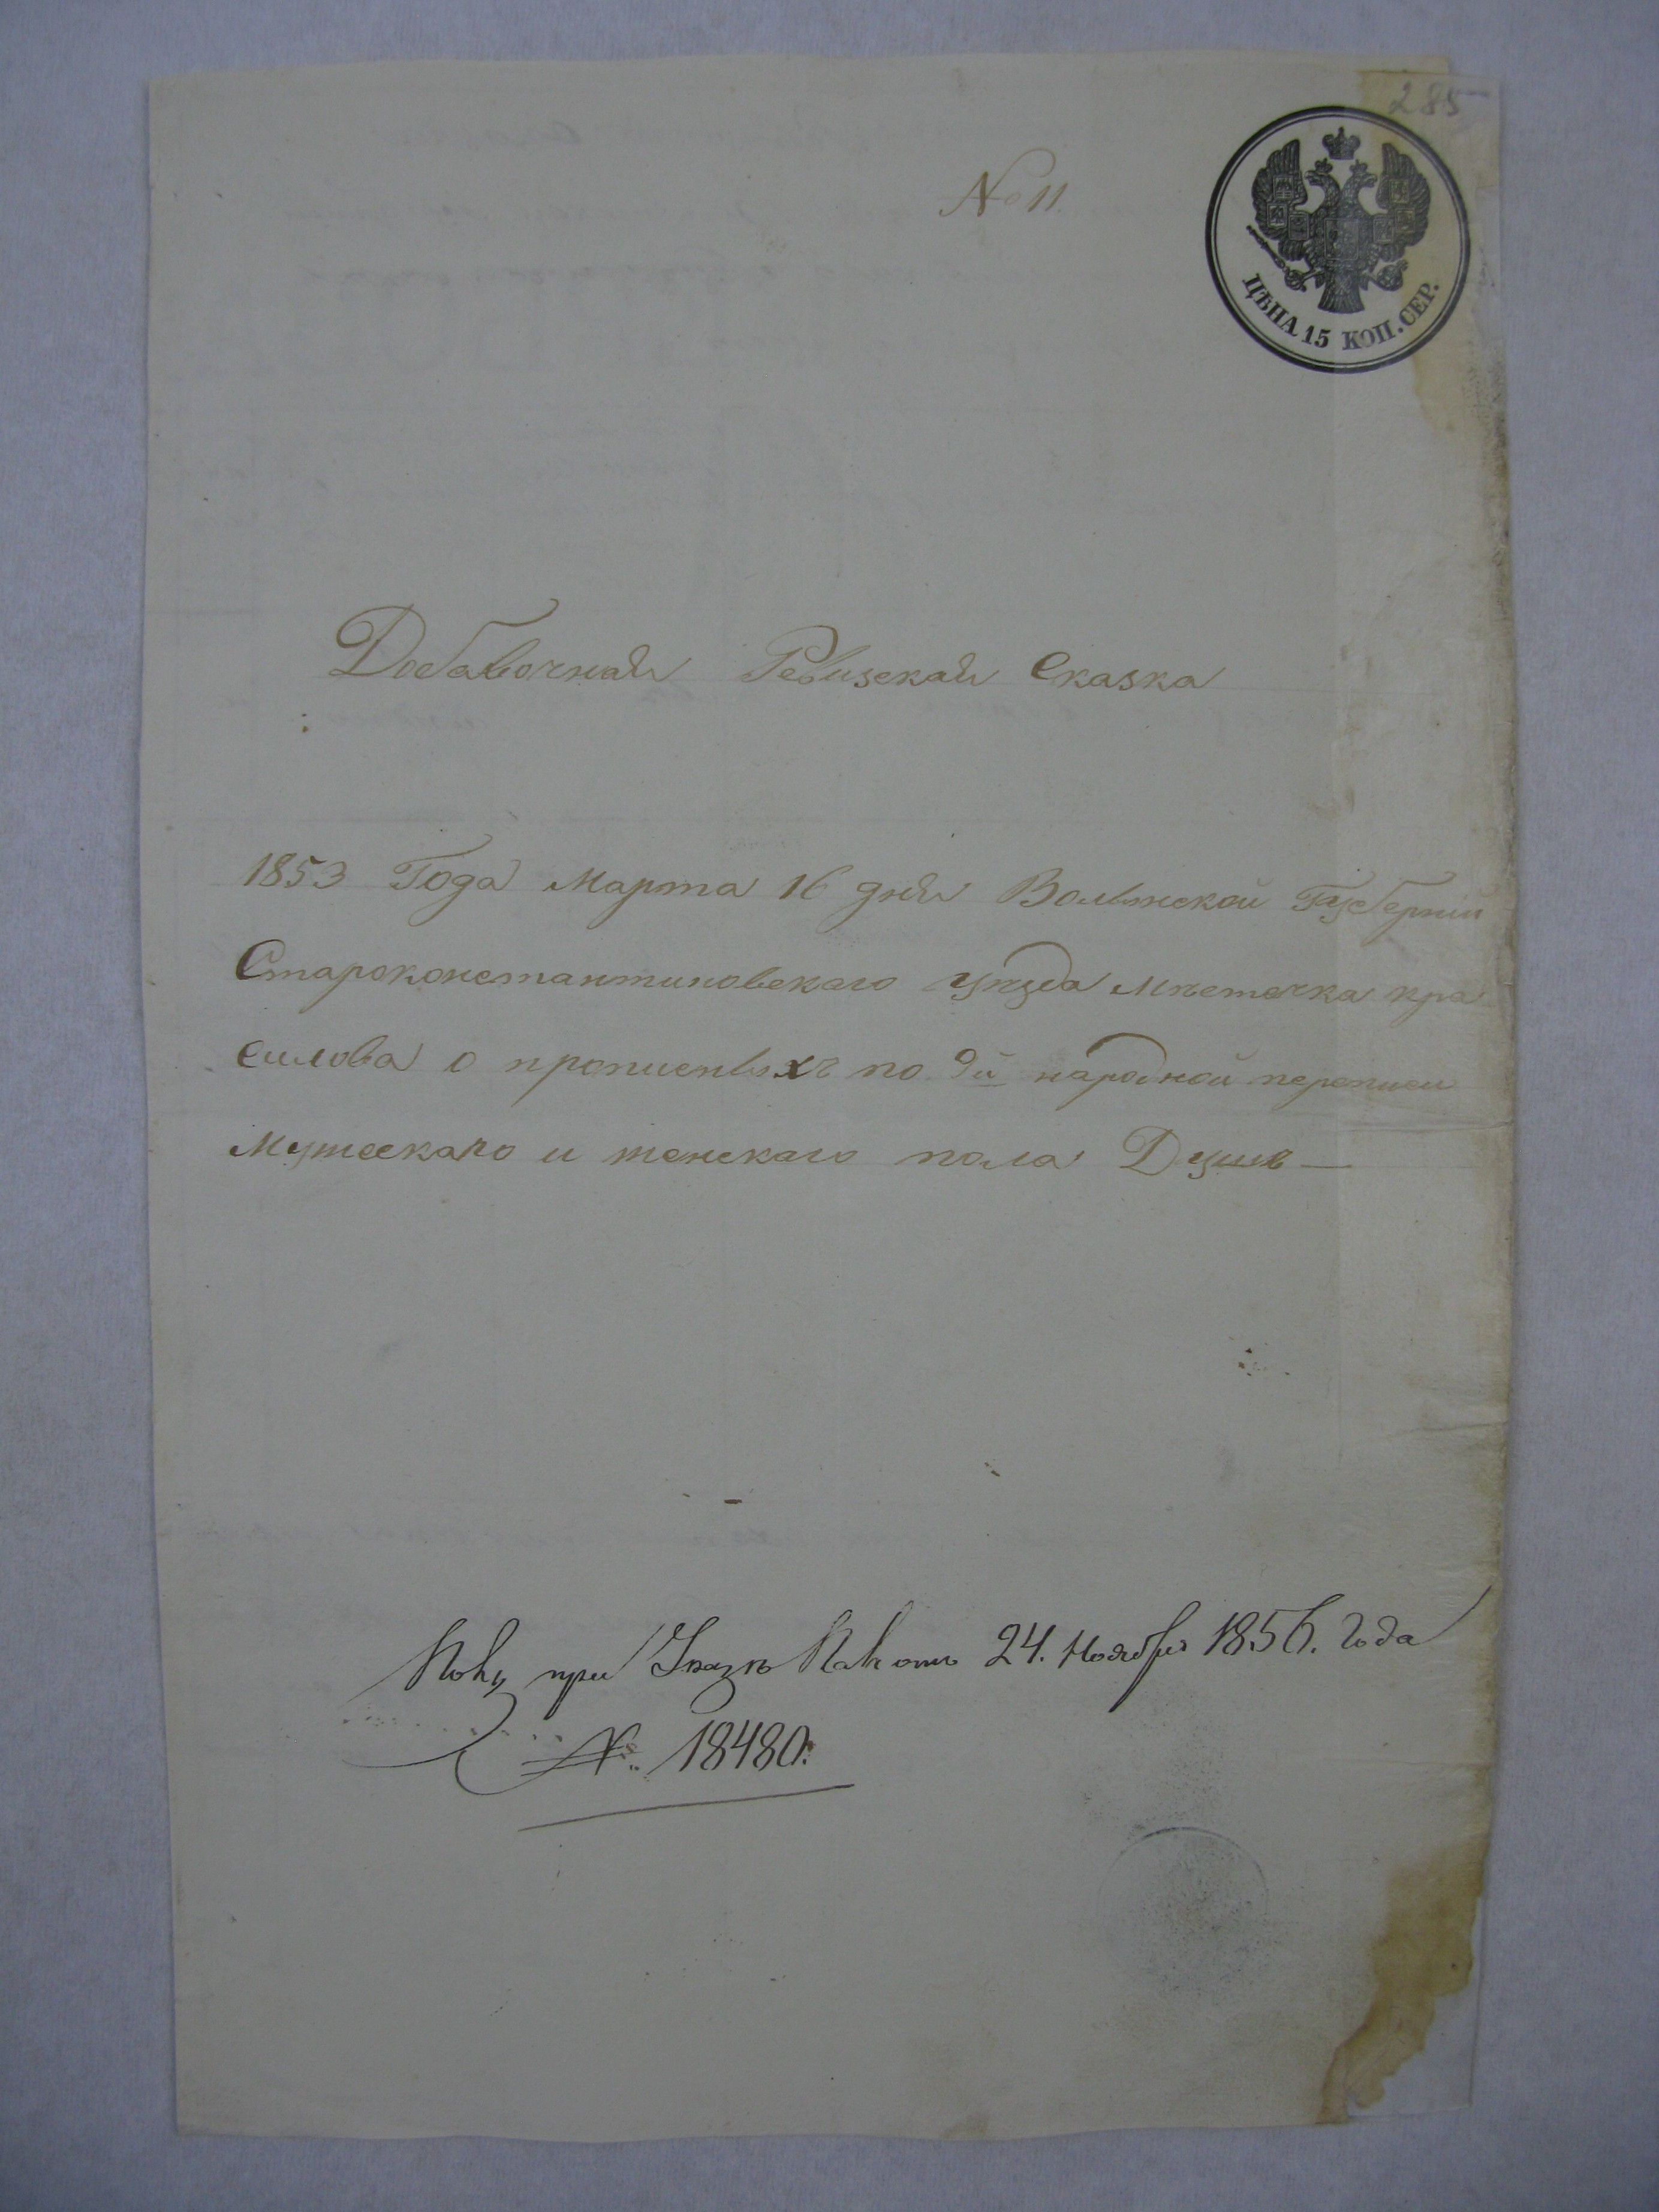 285
№ 11.
ЦѢНА 15 КОП. СЕР.
Добавочная Ревизская Сказка
1853 Года Марта 16 дня Волынской Губерніи
Староконстантиновскаго уѣзда мѣстечка кра
силова о прописныхъ по 9й народной переписи
Мужескаго и женскаго пола Душъ —
при Указѣ отъ 24. Ноября 1856. Года
№ 18480.